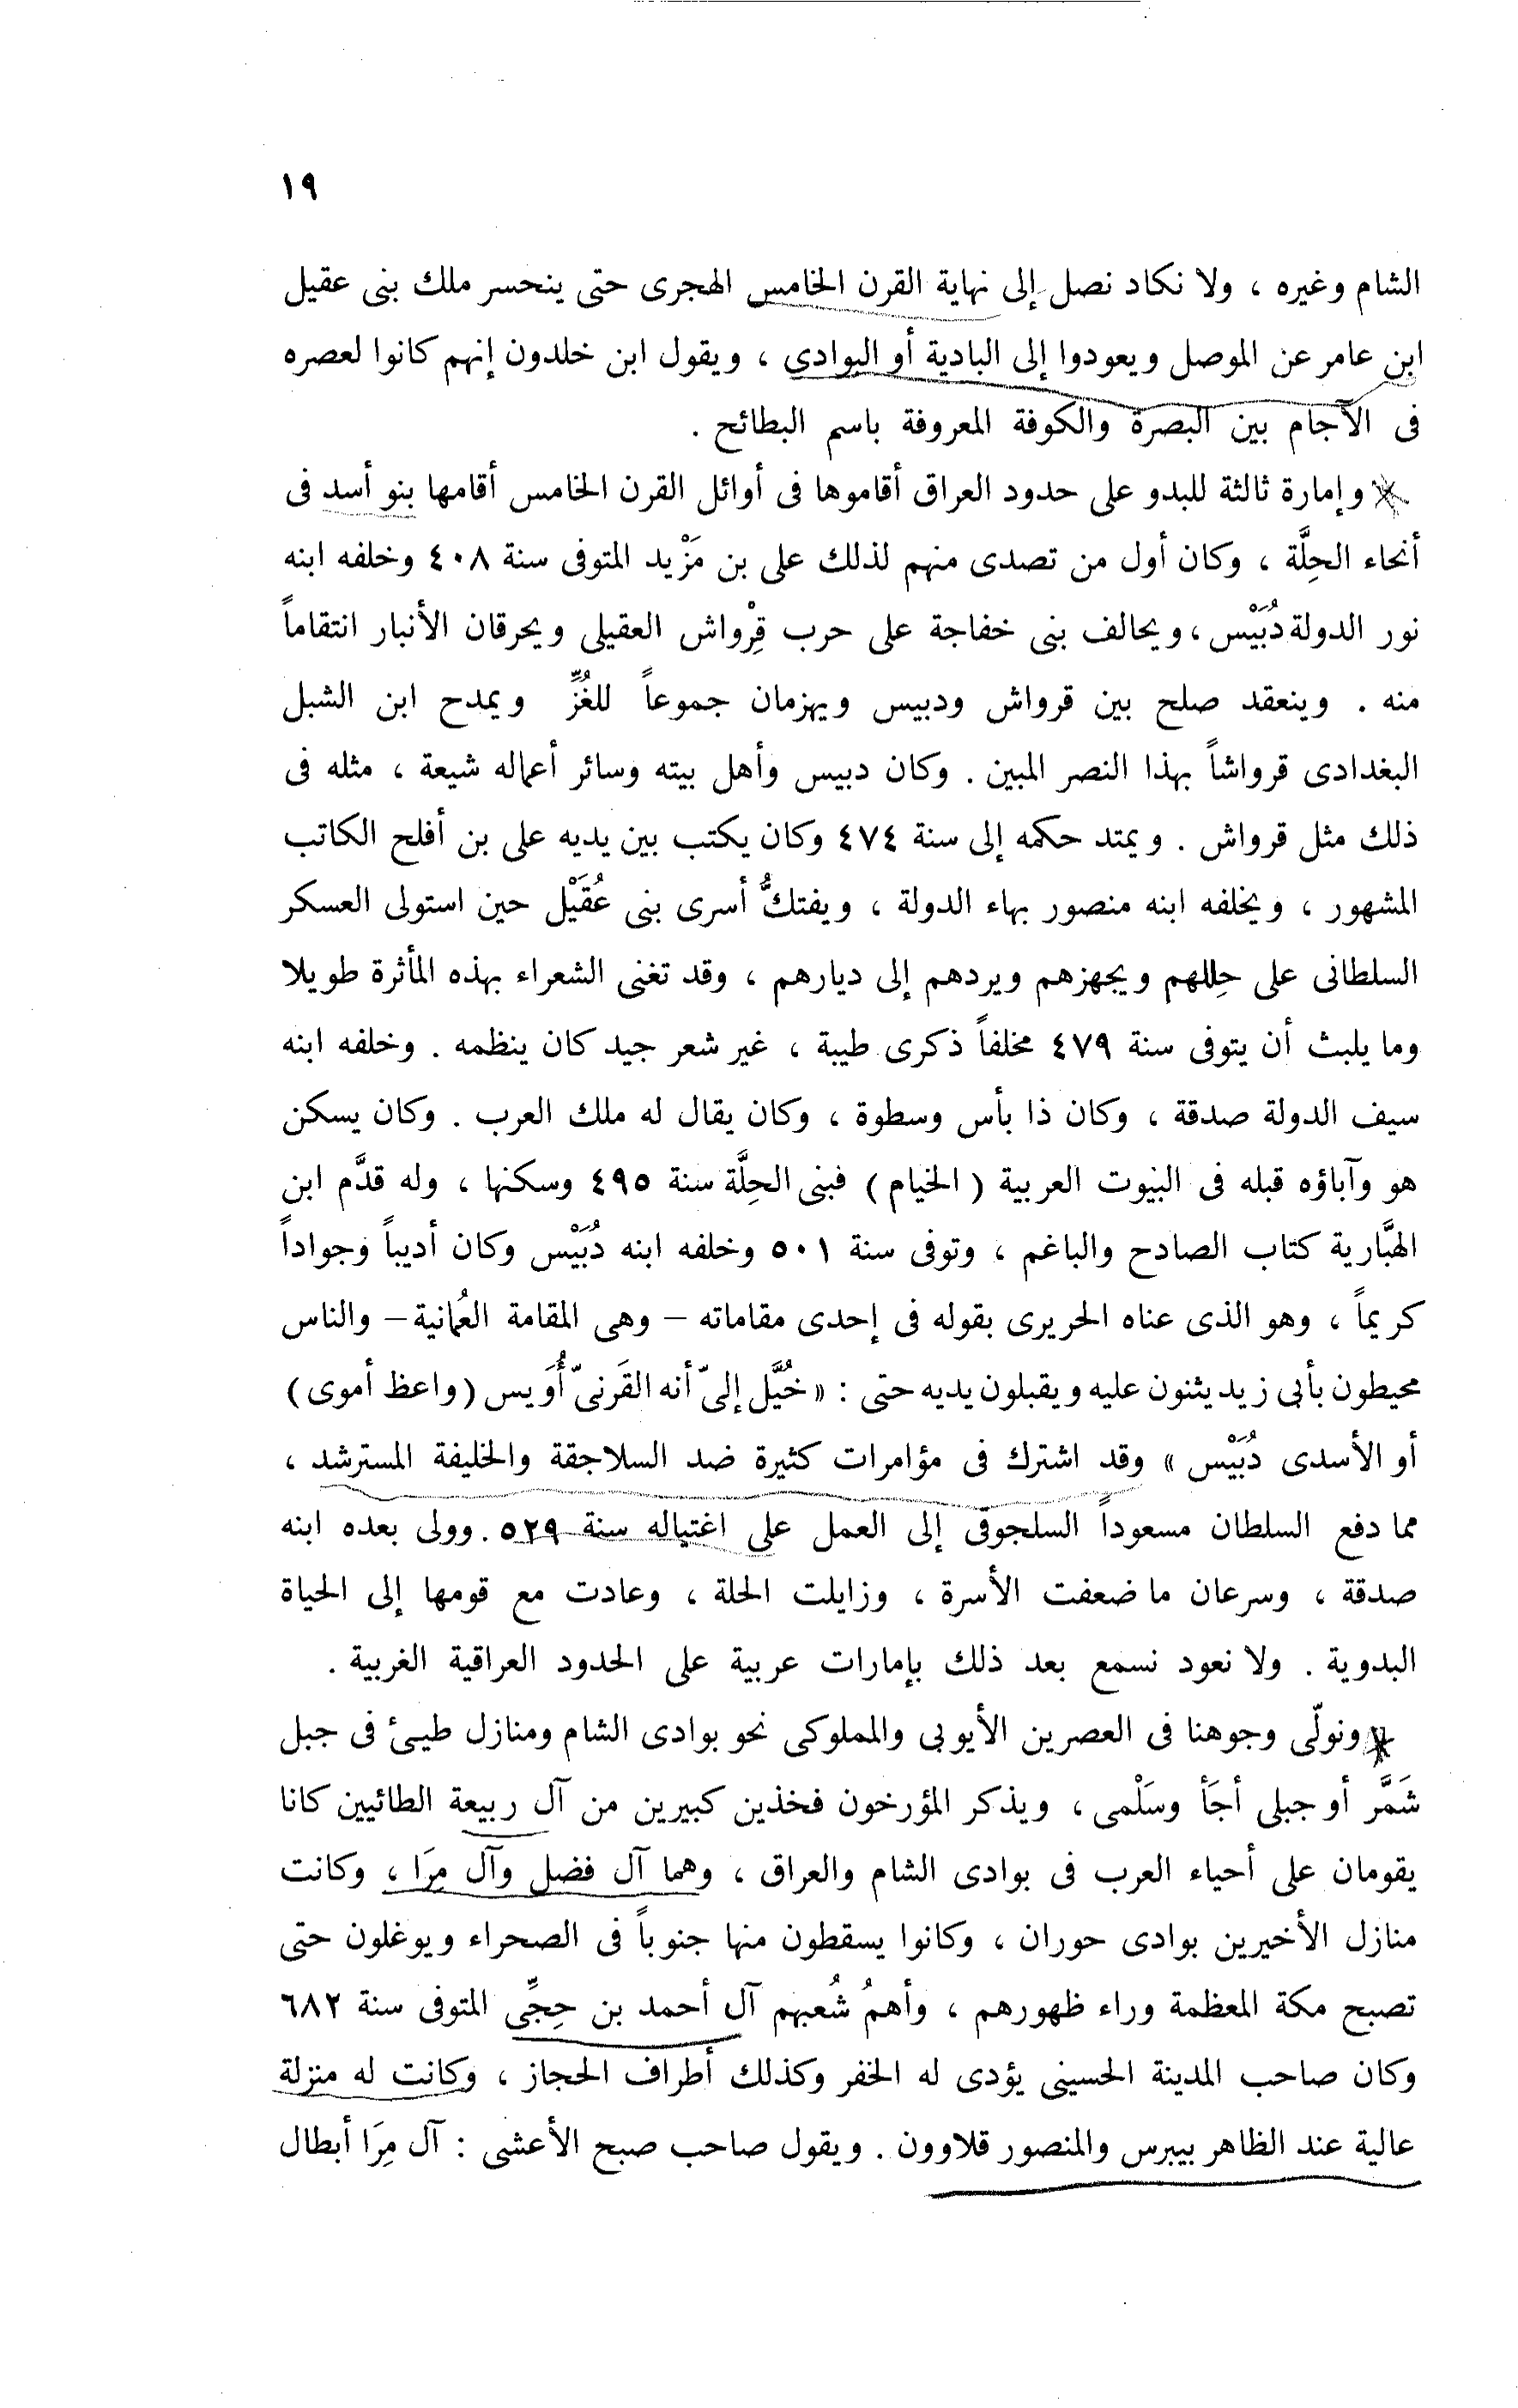 ١٩
الشام وغيره ، ولا نكاد نصل إلى نهاية القرن الخامس الهجرى حتى ينحسر ملك بنى عقيل
ابن عامر عن الموصل ويعودوا إلى البادية أو البوادى ، ويقول ابن خلدون إنهم كانوا لعصره
فى الآجام بين البصرة والكوفة المعروفة باسم البطائح .
وإمارة ثالثة للبدو على حدود العراق أقاموها فى أوائل القرن الخامس أقامها بنو أسد فى
أنحاء الحِلَّة ، وكان أول من تصدى منهم لذلك على بن مَزْيد المتوفى سنة ٤٠٨ وخلفه ابنه
نور الدولة دُبَيْس ، ويحالف بنى خفاجة على حرب قِرْواش العقيلى ويحرقان الأنبار انتقاماً
منه . وينعقد صلح بين قرواش ودبيس ويهزمان جموعاً للغُزِّ ويمدح ابن الشبل
البغدادى قرواشاً بهذا النصر المبين . وكان دبيس وأهل بيته وسائر أعماله شيعة ، مثله فى
ذلك مثل قرواش . ويمتد حكمه إلى سنة ٤٧٤ وكان يكتب بين يديه على بن أفلح الكاتب
المشهور ، ويخلفه ابنه منصور بهاء الدولة ، ويفتكُّ أسرى بنى عُقَيْل حين استولى العسكر
السلطانى على حِللهم ويجهزهم ويردهم إلى ديارهم ، وقد تغنى الشعراء بهذه المأثرة طويلا
وما يلبث أن يتوفى سنة ٤٧٩ مخلفاً ذكرى طيبة ، غير شعر جيد كان ينظمه . وخلفه ابنه
سيف الدولة صدقة ، وكان ذا بأس وسطوة ، وكان يقال له ملك العرب . وكان يسكن
هو وآباؤه قبله فى البيوت العربية ( الخيام ) فبنى الحِلَّة سنة ٤٩٥ وسكنها ، وله قدَّم ابن
الهبَّارية كتاب الصادح والباغم ، وتوفى سنة ٥٠١ وخلفه ابنه دُبَيْس وكان أديباً وجواداً
كريماً ، وهو الذى عناه الحريرى بقوله فى إحدى مقاماته – وهى المقامة العُمانية – والناس
محيطون بأبى زيد يثنون عليه ويقبلون يديه حتى : « خُيِّل إلىّ أنه القَرنىّ أُوَيس (واعظ أموى)
أو الأسدى دُبَيْس » وقد اشترك فى مؤامرات كثيرة ضد السلاجقة والخليفة المسترشد ،
مما دفع السلطان مسعوداً السلجوقى إلى العمل على اغتياله سنة ٥٢٩ . وولى بعده ابنه
صدقة ، وسرعان ما ضعفت الأسرة ، وزايلت الحلة ، وعادت مع قومها إلى الحياة
البدوية . ولا نعود نسمع بعد ذلك بإمارات عربية على الحدود العراقية الغربية .
ونولّى وجوهنا فى العصرين الأيوبى والمملوكى نحو بوادى الشام ومنازل طيئ فى جبل
شَمَّر أو جبلى أجَأ وسَلْمى ، ويذكر المؤرخون فخذين كبيرين من آل ربيعة الطائيين كانا
يقومان على أحياء العرب فى بوادى الشام والعراق ، وهما آل فضل وآل مِرَا ، وكانت
منازل الأخيرين بوادى حوران ، وكانوا يسقطون منها جنوباً فى الصحراء ويوغلون حتى
تصبح مكة المعظمة وراء ظهورهم ، وأهمُ شُعبهم آل أحمد بن حِجِّى المتوفى سنة ٦٨٢
وكان صاحب المدينة الحسينى يؤدى له الخفر وكذلك أطراف الحجاز ، وكانت له منزلة
عالية عند الظاهر بيبرس والمنصور قلاوون . ويقول صاحب صبح الأعشى : آل مِرَا أبطال